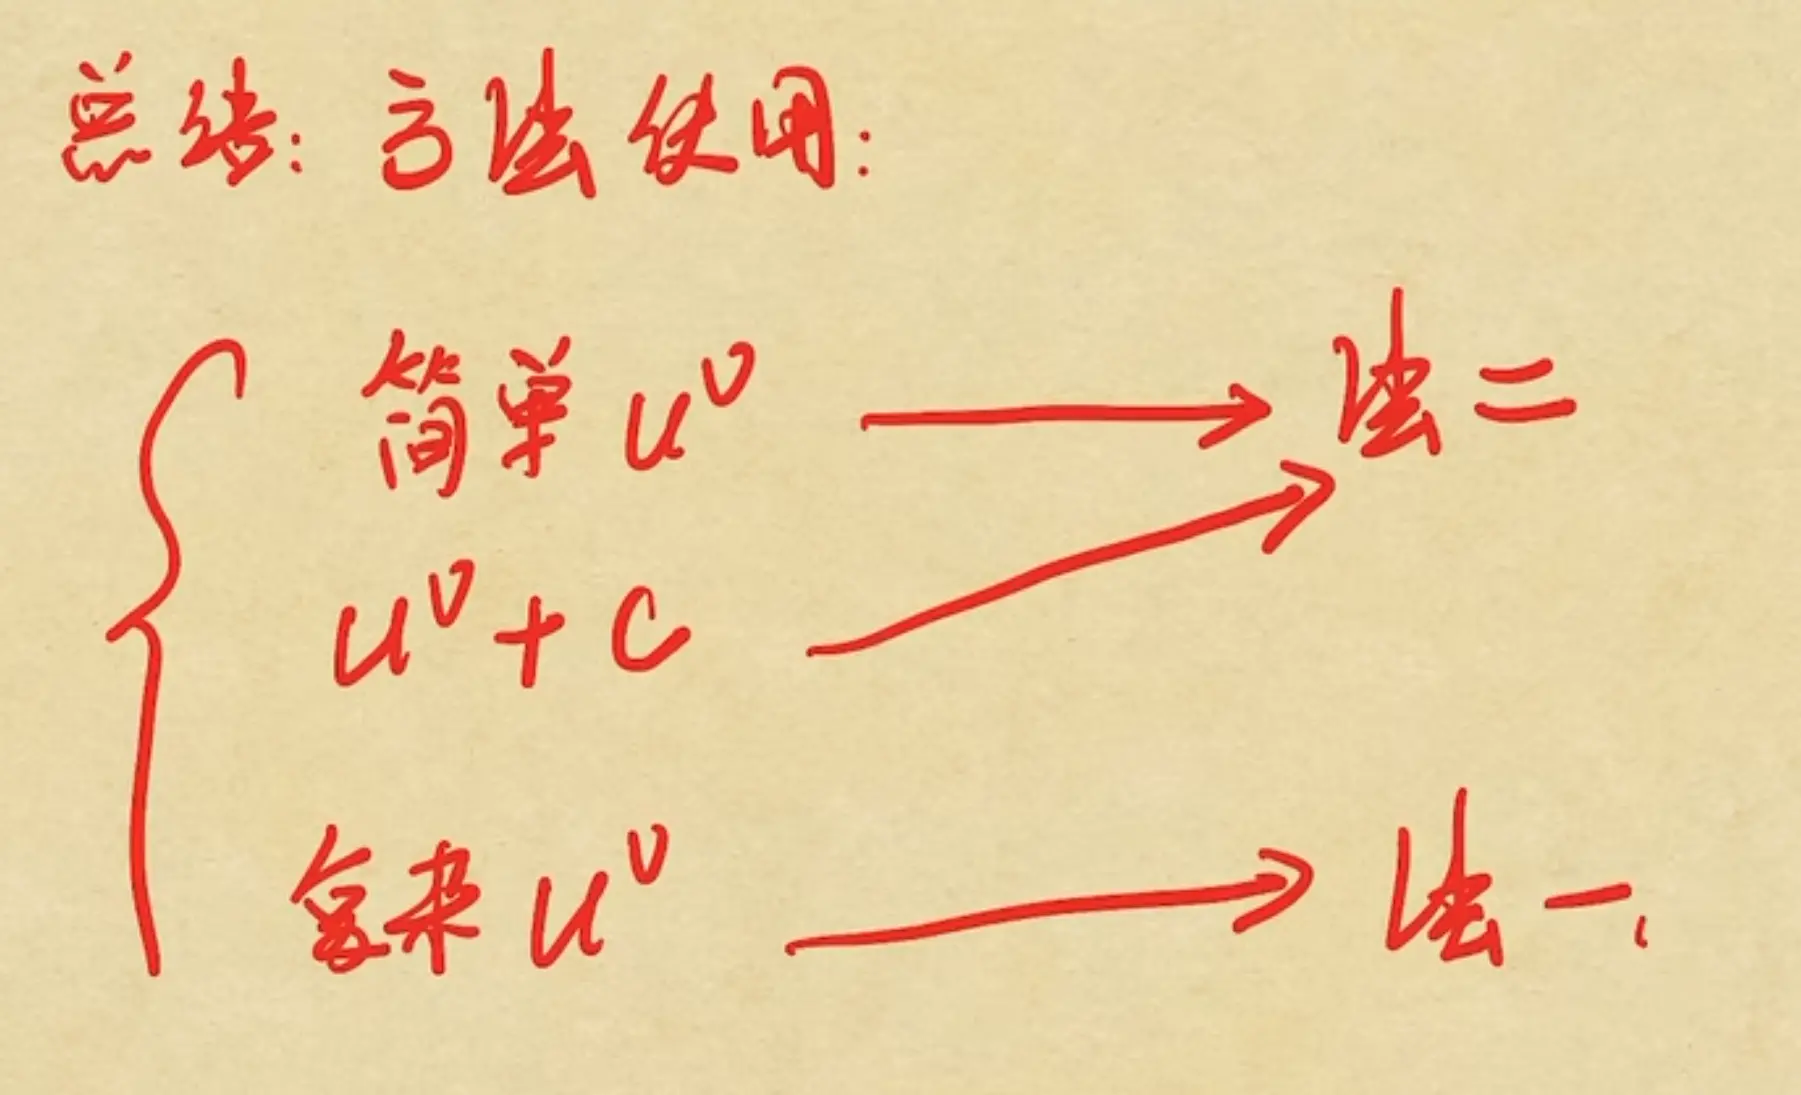 总结:方法使用:
简单 u^v → 法二
u^v + c
复杂 u^v → 法一.